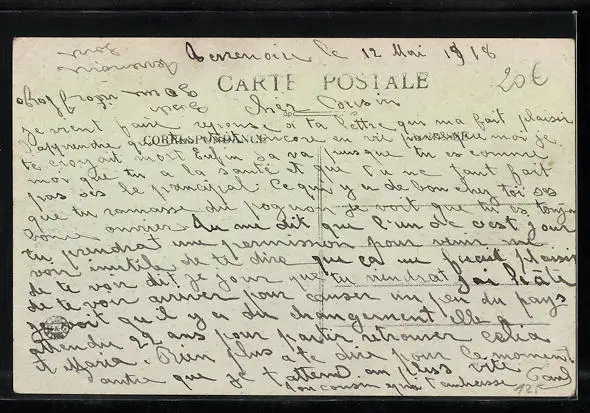 Terrenoire le 12 Mai 1918
20€
CARTE POSTALE
Cher Cousin
je vient faire reponse a ta lettre qui ma fait plaisir
CORRESPONDANCE
d'apprendre que tu encore en vie puisque moi je
te croyait mort Enfin sa va puisque tu es comme
moi que tu a la santé et que tu ne tant fait
pas ses le principal Ce qui y a de bon chez toi ses
que tu ramasse du pognon je voit que tu es toujour
bonne ouvrier Tu me dit que l'un de c'est jour
tu prendrat une permission pour venir me
voir inutile de te dire que ça me feront plaisir
de te voir dit je jour que tu viendrat J'ai hâte
de te voir arriver pour causer un peu du pays
je voit qu'il y a du changement elle a
attendu 22 ans pour partir retrouver
et Maria. Rien plus a te dire pour le moment
autre que je t'attend au plus vite
ton cousin qui t'embrasse
125